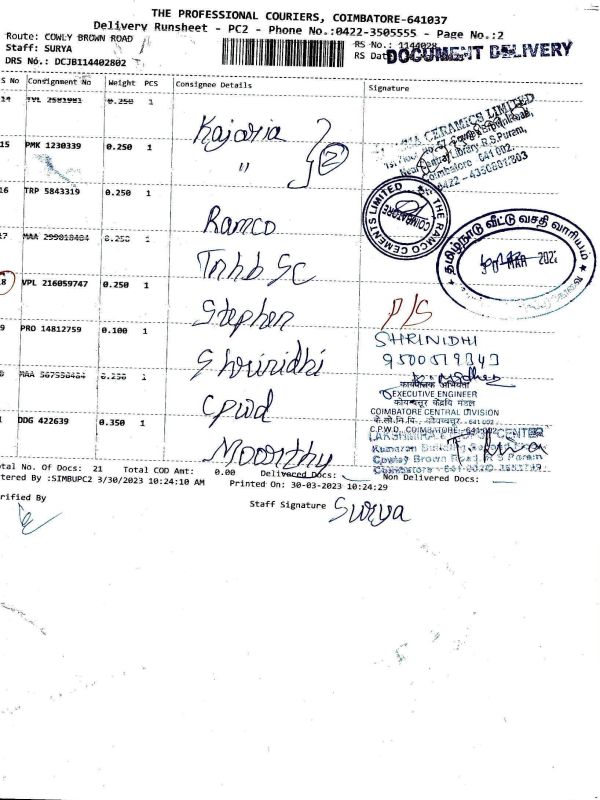 THE PROFESSIONAL COURIERS, COIMBATORE-641037
Delivery Runsheet - PC2 - Phone No.:0422-3505555 - Page No.:2
Route: COWLY BROWN ROAD
RS No.: 1144028
Staff: SURYA
RS Dat
DOCUMENT DELIVERY
DRS No.: DCJB114402802
S No Consignment No Weight PCS Consignee Details Signature
14 TVL 2581981 0.250 1 Kajaria
15 PMK 1230339 0.250 1 " 2
CERAMICS LIMITED
R.S.Puram,
Coimbatore 641 002.
0422 - 4350601/603
16 TRP 5843319 0.250 1 Ramco
THE RAMCO CEMENTS LIMITED
COIMBATORE
17 MAA 299818484 0.250 1 Tnhb SC
தமிழ்நாடு வீட்டு வசதி வாரியம்
30 MAR 202
8 VPL 216059747 0.250 1 Stephen P/S
9 PRO 14812759 0.100 1 Shrinidhi SHRINIDHI
9500519343
MAA 567558484 0.250 1 CPWD
कार्यपालक अभियंता
EXECUTIVE ENGINEER
कोयम्बत्तूर केंद्रीय मंडल
COIMBATORE CENTRAL DIVISION
के.लो.नि.वि., कोयम्बत्तूर - 641 002
C.P.W.D., COIMBATORE - 641 002
DDG 422639 0.350 1 Moorthy
CENTER
Kumaran Building
Cowley Brown Road, R S Puram
Coimbatore - 641 002
otal No. Of Docs: 21 Total COD Amt: 0.00 Delivered Docs: Non Delivered Docs:
tered By :SIMBUPC2 3/30/2023 10:24:10 AM Printed On: 30-03-2023 10:24:29
rified By
Staff Signature Surya